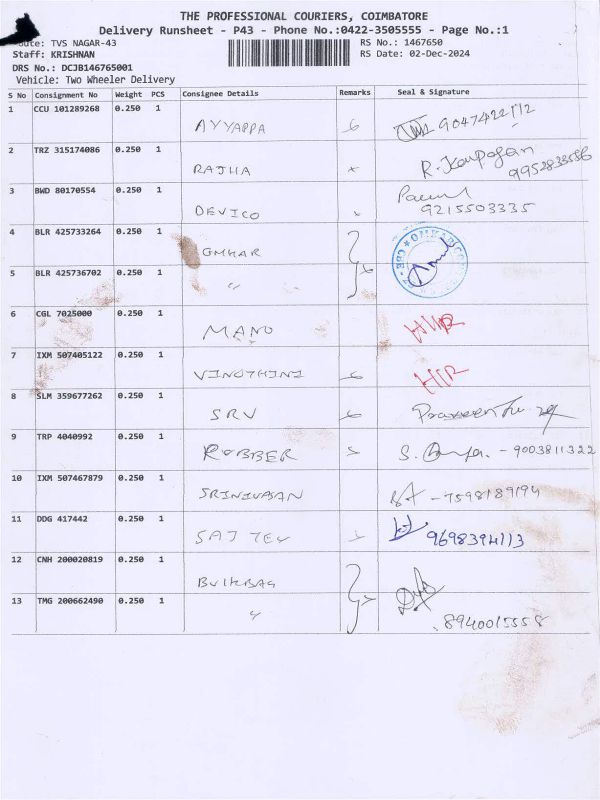 THE PROFESSIONAL COURIERS, COIMBATORE
Delivery Runsheet - P43 - Phone No.:0422-3505555 - Page No.:1
Route: TVS NAGAR-43 RS No.: 1467650
Staff: KRISHNAN RS Date: 02-Dec-2024
DRS No.: DCJB146765001
Vehicle: Two Wheeler Delivery
S No Consignment No Weight PCS Consignee Details Remarks Seal & Signature
1 CCU 101289268 0.250 1 AYYAPPA
2 TRZ 315174086 0.250 1 RAJHA
3 BWD 80170554 0.250 1 DEVICO 9215503335
4 BLR 425733264 0.250 1 OMKAR
5 BLR 425736702 0.250 1 "
6 CGL 7025000 0.250 1 MANO
7 IXM 507405122 0.250 1 VINOTHINI
8 SLM 359677262 0.250 1 SRV
9 TRP 4040992 0.250 1 RUBBER - 9003811322
10 IXM 507467879 0.250 1 SRINIVASAN - 7598189194
11 DDG 417442 0.250 1 9698394113
12 CNH 200020819 0.250 1 BULKBAG
13 TMG 200662490 0.250 1 " 8940015558